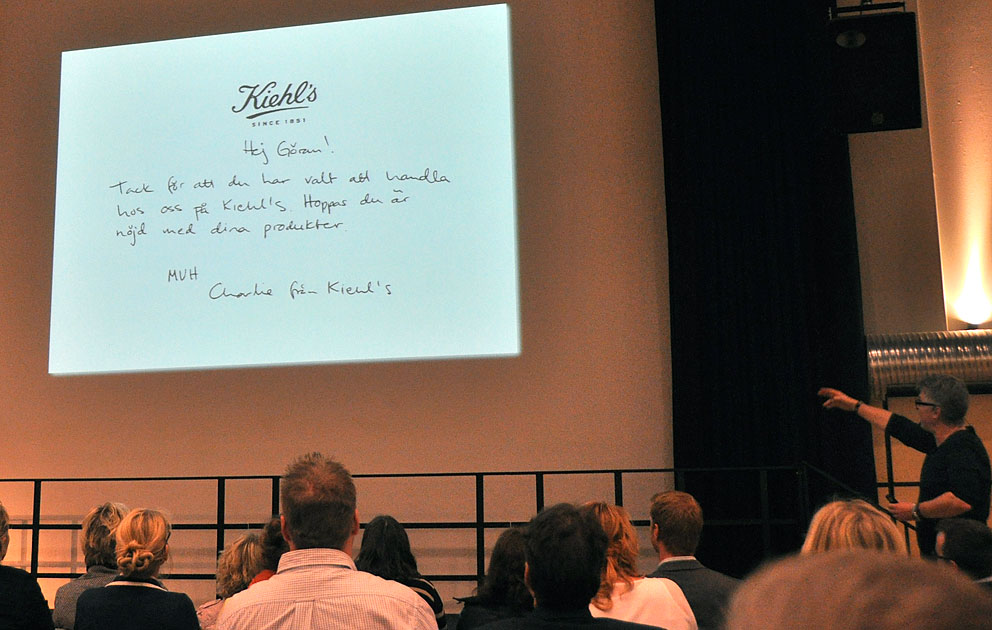 Kiehl's
SINCE 1851
Hej Göran!
Tack för att du har valt att handla
hos oss på Kiehl's. Hoppas du är
nöjd med dina produkter.
MVH
Charlie från Kiehl's